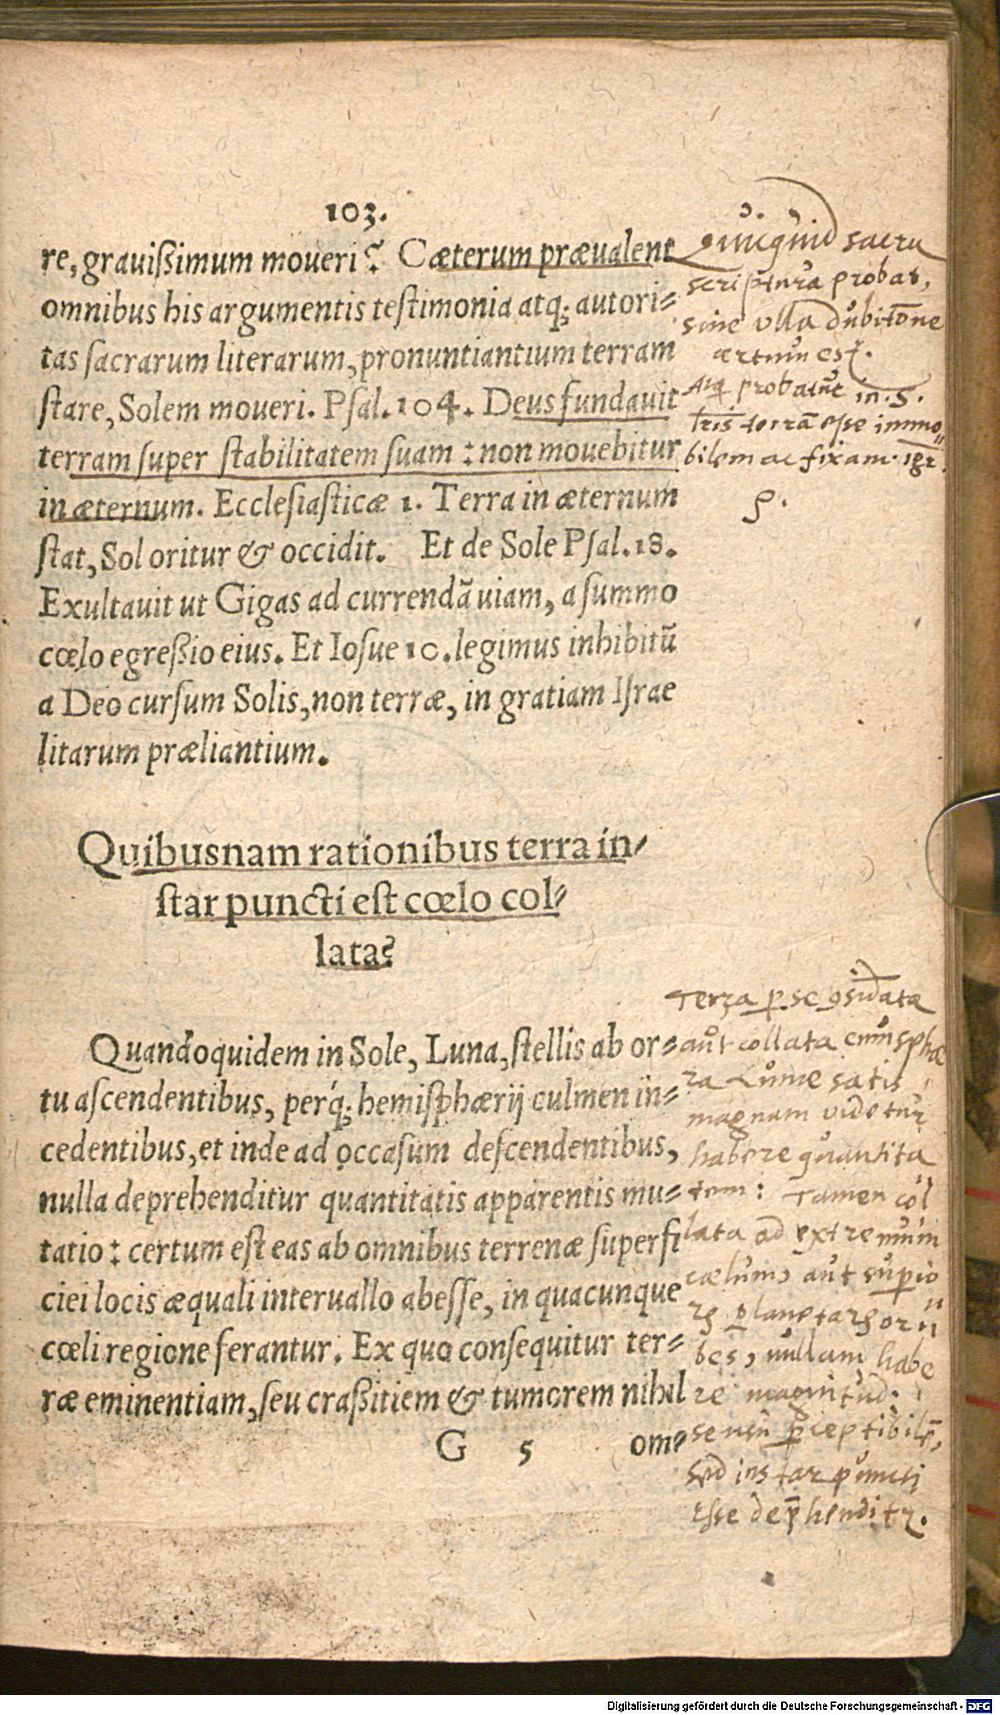 103.
re, grauißimum moueri? Cæterum præualent
omnibus his argumentis testimonia atq; autori-
tas sacrarum literarum, pronuntiantium terram
stare, Solem moueri. Psal. 104. Deus fundauit
terram super stabilitatem suam: non mouebitur
in æternum. Ecclesiasticæ 1. Terra in æternum
stat, Sol oritur & occidit. Et de Sole Psal. 18.
Exultauit ut Gigas ad currendã uiam, a summo
cœlo egreßio eius. Et Iosue 10. legimus inhibitũ
a Deo cursum Solis, non terræ, in gratiam Israe
litarum præliantium.
Quibusnam rationibus terra in-
star puncti est cœlo col-
lata?
Quandoquidem in Sole, Luna, stellis ab or-
tu ascendentibus, perq́; hemisphærij culmen in-
cedentibus, et inde ad occasum descendentibus,
nulla deprehenditur quantitatis apparentis mu-
tatio: certum est eas ab omnibus terrenæ superfi
ciei locis æquali interuallo abesse, in quacunque
cœli regione ferantur. Ex quo consequitur ter-
ræ eminentiam, seu craßitiem & tumorem nihil
G 5 om-
Quicquid sacra
scriptura probat,
sine ulla dubitõne
certum est.
Atq probatũt in. S.
lr̃is terrã esse immo
bilem ac fixam. igr̃.
Terra p se 9sid̃ata
aũt collata cum sphæ
ra Lunæ satis
magnam videtur
habere quantita
tem: Tamen col
lata ad extremum
cælum, aut supio
rũ planetarũ ori
bes, nullam habe
re magnitud.
sensu pceptibilẽ,
sed instar puncti
esse dep̃henditr.
Digitalisierung gefördert durch die Deutsche Forschungsgemeinschaft - DFG